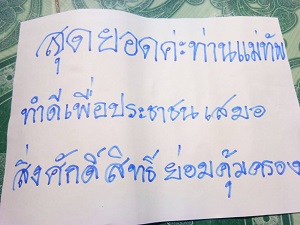 สุดยอดค่ะท่านแม่ทัพ
ทำดีเพื่อประชาชนเสมอ
สิ่งศักดิ์สิทธิ์ ย่อมคุ้มครอง